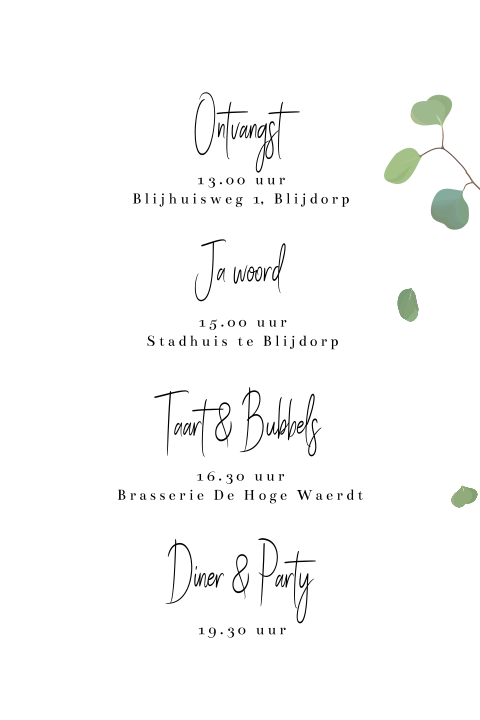 Ontvangst
13.00 uur
Blijhuisweg 1, Blijdorp
Ja woord
15.00 uur
Stadhuis te Blijdorp
Taart & Bubbels
16.30 uur
Brasserie De Hoge Waerdt
Diner & Party
19.30 uur